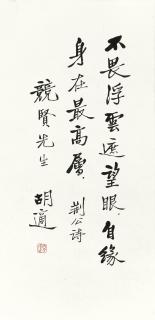 不畏浮雲遮望眼,自緣
身在最高層. 荆公詩
競賢先生
胡適